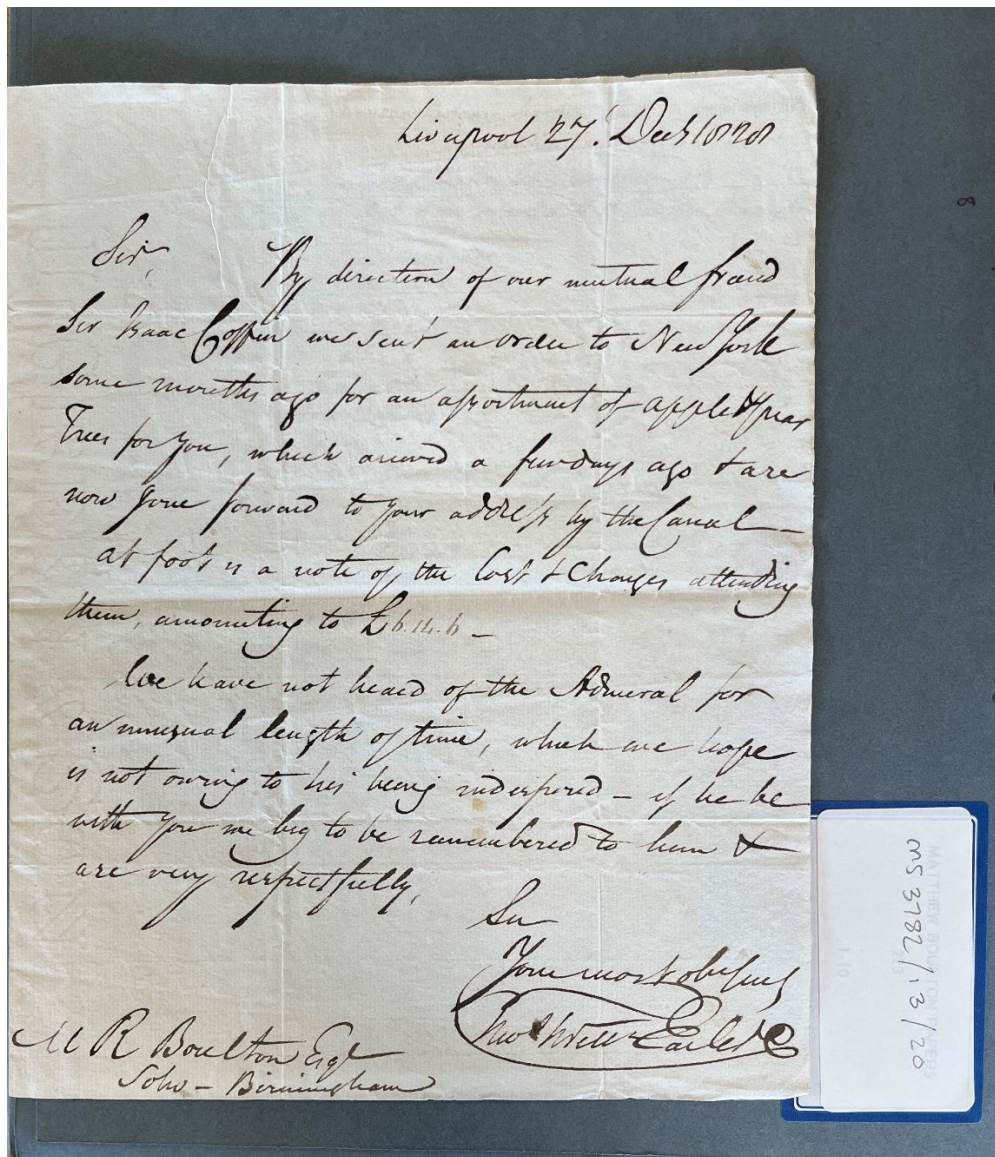 Liverpool 27. Decr 1820
Sir, By direction of our mutual friend
Sir Isaac Coffin we sent an order to New York
some months ago for an assortment of apple & pear
Trees for you, which arrived a few days ago & are
now gone forward to your address by the Canal —
at foot is a note of the Cost & Charges attending
them, amounting to £6.14.6 —
We have not heard of the Admiral for
an unusual length of time, which we hope
is not owing to his being indisposed — if he be
with you we beg to be remembered to him &
are very respectfully,
Sir
Your most obt Servts
Thos & Willm Earle & Co
M R Boulton Esqr
Soho — Birmingham
8
MS 3782/13/20
MATTHEW BOULTON PAPERS
1-10